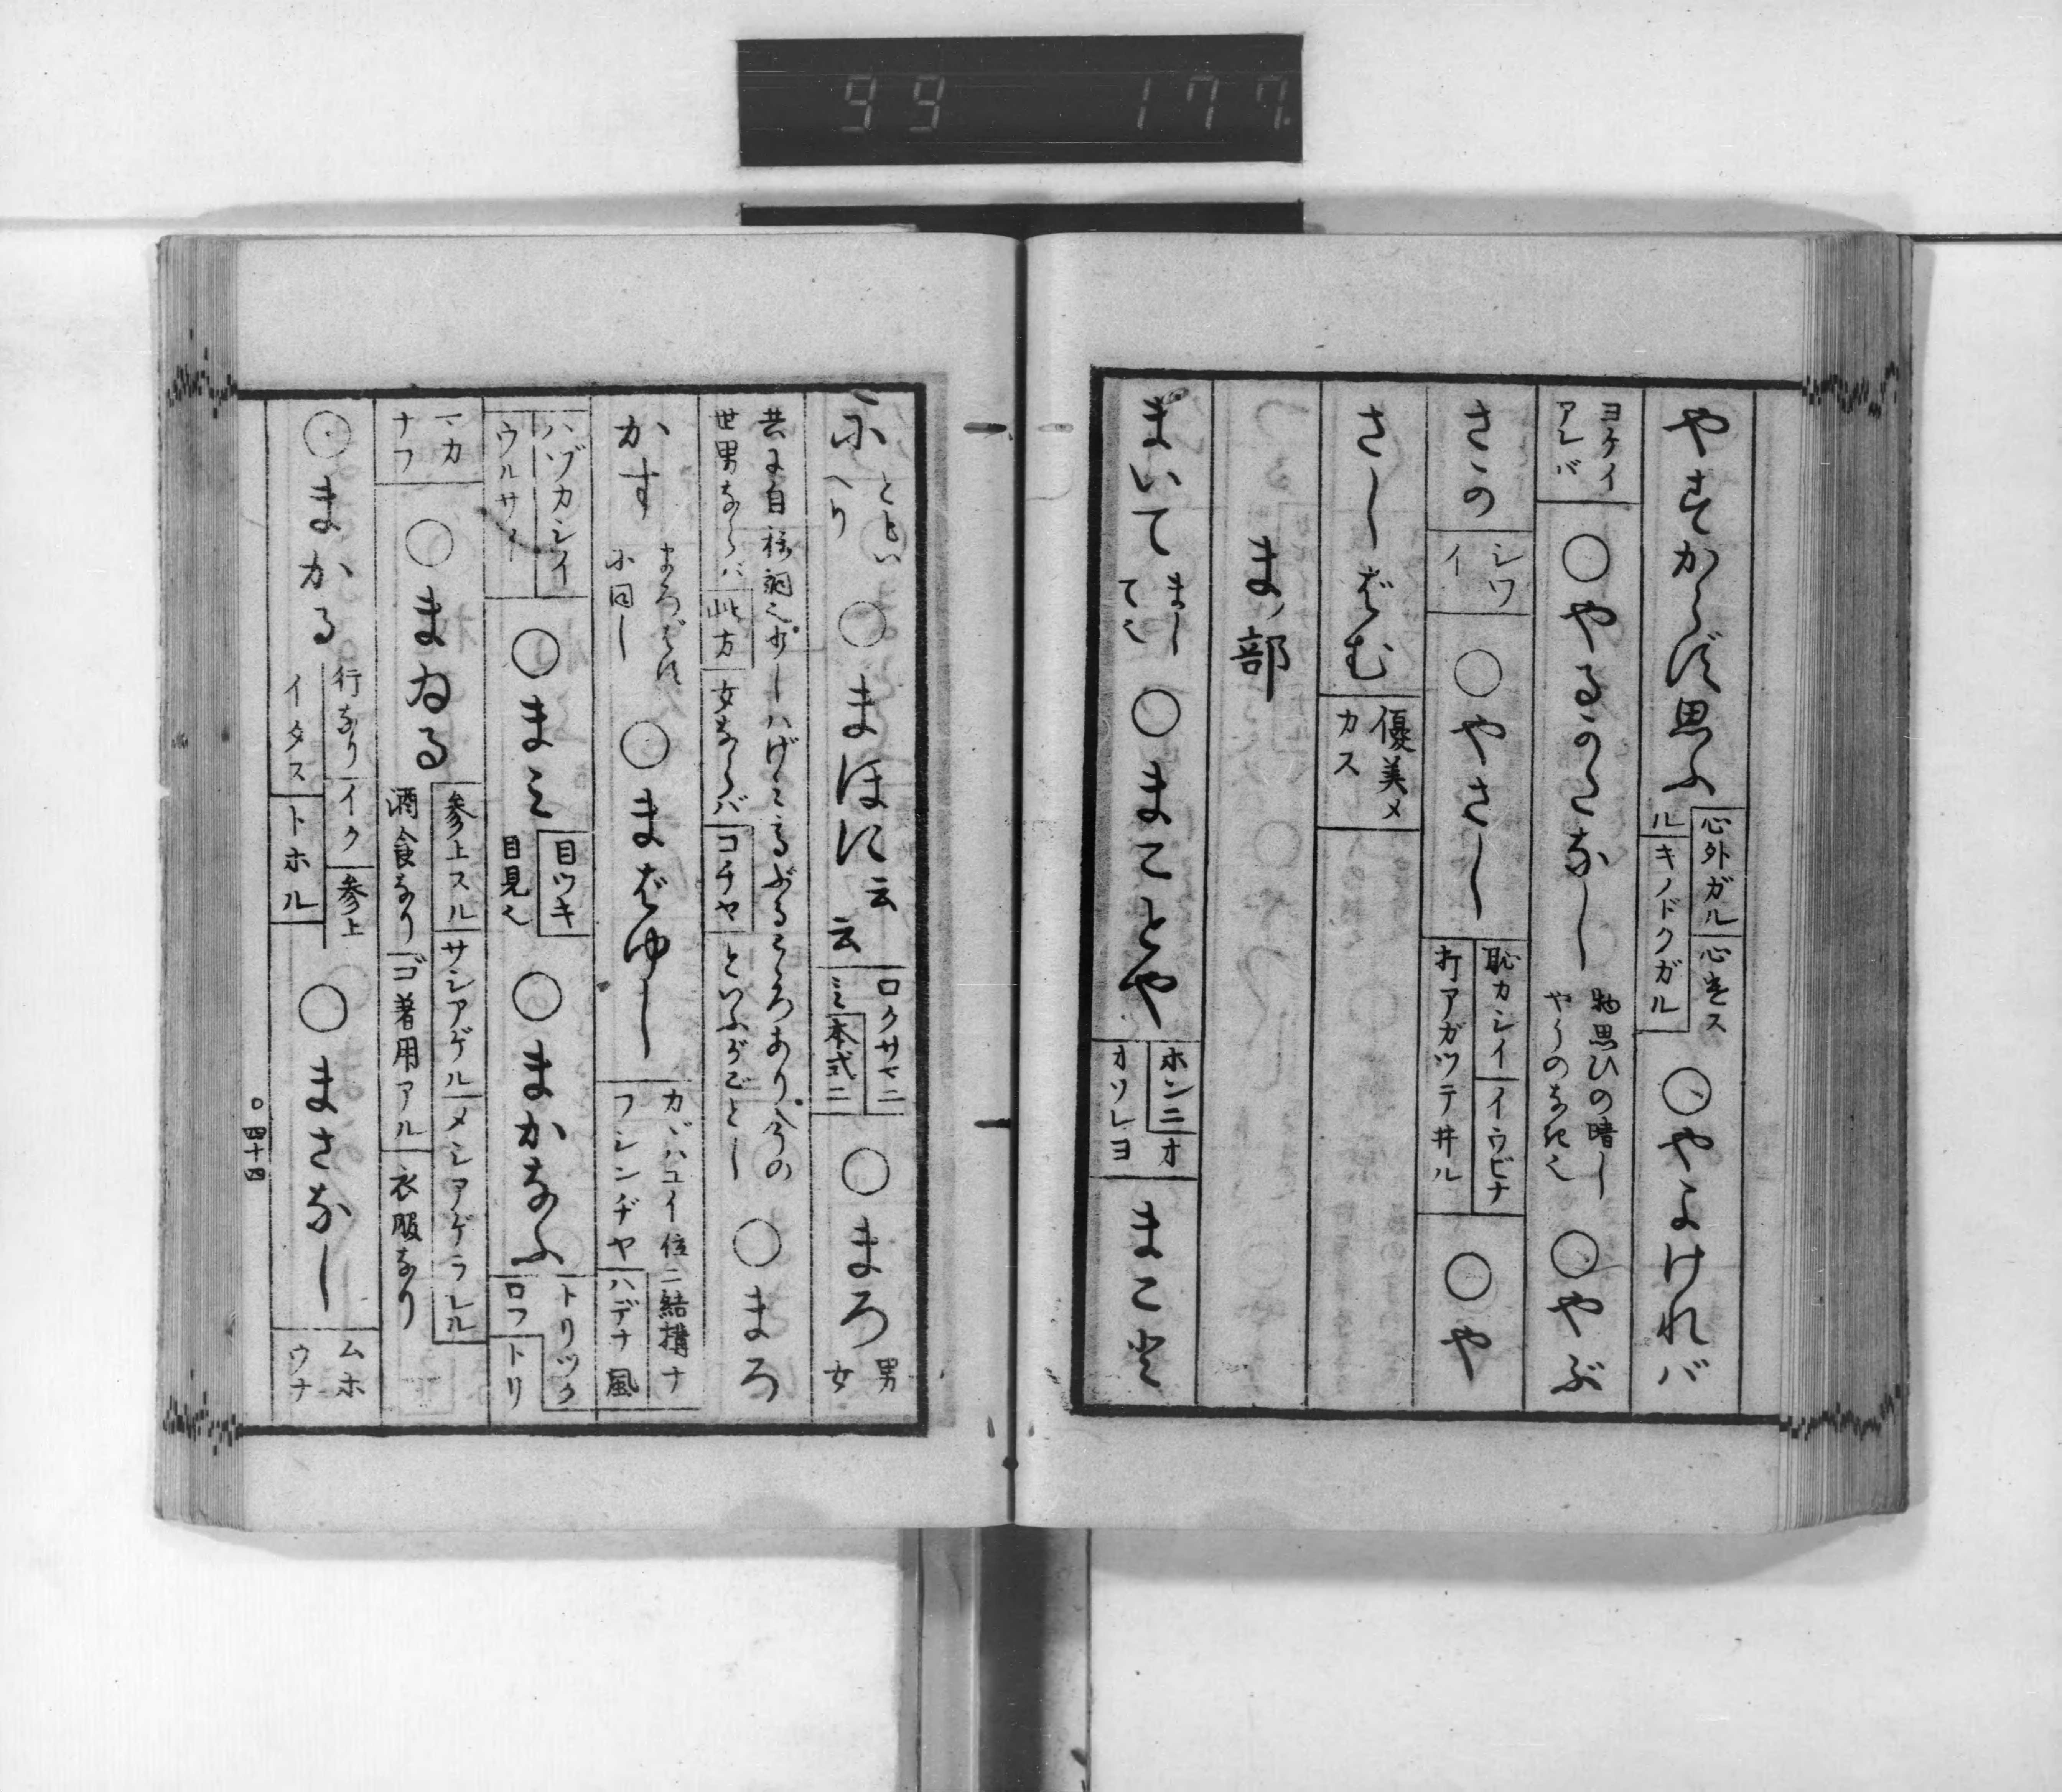 99 177
やすからず思ふ 心外ガル 心遣ス ル キノドクガル ○やよけれバ
ヨケイ アレバ ○やるかたなし 物思ひの晴し やうのなきく ○やぶ
さかの シワ イ ○やさし 恥カシイ イウビナ 打アガツテ井ル ○や
さしばむ 優美メ カス
まノ部
まいて まし てく ○まことや ホンニ オ オソレヨ まこと
ふ とい へり ○まほに云云 ロクサマニ ミ 本式ニ ○まろ 男 女
共に自稱詞也少しハげミたるぶるこゝろあり今の
世男ならバ 此方 女ならバ コチヤ といふがごとし ○まろ
かす まろばす に同し ○まばゆし カヾハユイ位ニ結構ナ フレンヂヤ ハデナ風
ハヅカシイ ウルサイ ○まミ 目ツキ 目見也 ○まかなふ トリツク ロフ トリ
マカ ナフ ○まゐる 参上スル サシアゲル メシアゲラレル 酒食なり ゴ着用アル 衣服なり
○まかる 行なり イク 参上 イタス トホル ○まさなし ムホ ウナ
○四十四